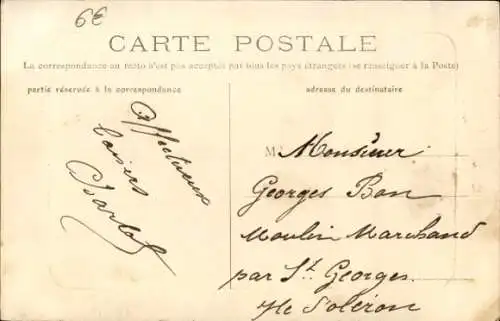 6€
CARTE POSTALE
La correspondance au recto n'est pas acceptée par tous les pays étrangers (se renseigner à la Poste)
partie réservée à la correspondance
adresse du destinataire
Affectueux
baisers
Charlot
M Monsieur
Georges Bon
Moulin Marchand
par St Georges
Ile d'oléron